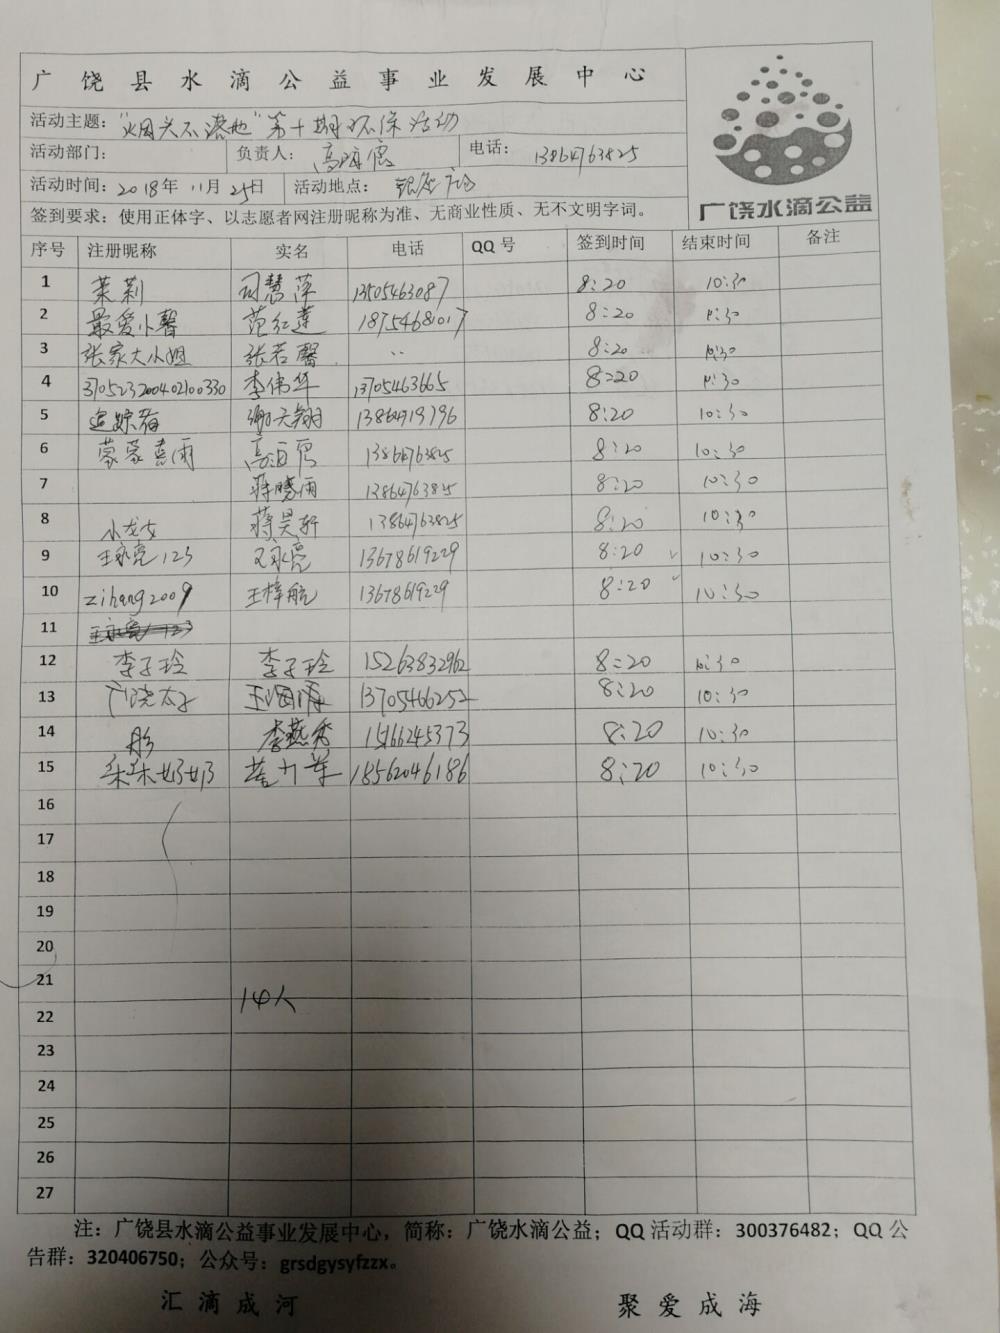 广饶县水滴公益事业发展中心
广饶水滴公益
活动主题：“烟头不落地”第十期环保活动
活动部门： 负责人： 电话：13864763825
活动时间：2018年 11月 25日 活动地点：
签到要求：使用正体字、以志愿者网注册昵称为准、无商业性质、无不文明字词。
序号 注册昵称 实名 电话 QQ号 签到时间 结束时间 备注
1 茉莉 司慧萍 13505463087 8:20 10:30
2 最爱小馨 范红莲 18754681017 8:20 10:30
3 张家大小姐 张若馨 .. 8:20 10:30
4 370523200402100330 李伟华 13705463665 8:20 10:30
5 谢天翔 13864719796 8:20 10:30
6 蒙蒙喜雨 13864763825 8:20 10:30
7 蒋晓雨 13864763825 8:20 10:30
8 小龙女 蒋昊轩 13864763825 8:20 10:30
9 王永亮123 王永亮 13678619229 8:20 10:30
10 zihang2009 王梓航 13678619229 8:20 10:30
11 王永亮123
12 李子玲 李子玲 15263832962 8:20 10:30
13 广饶太子 13705466252 8:20 10:30
14 彤 李燕秀 15166245373 8:20 10:30
15 18562046186 8:20 10:30
16
17
18
19
20
21 14人
22
23
24
25
26
27
注：广饶县水滴公益事业发展中心，简称：广饶水滴公益；QQ活动群：300376482；QQ公
告群：320406750；公众号：grsdgysyfzzx。
汇滴成河 聚爱成海